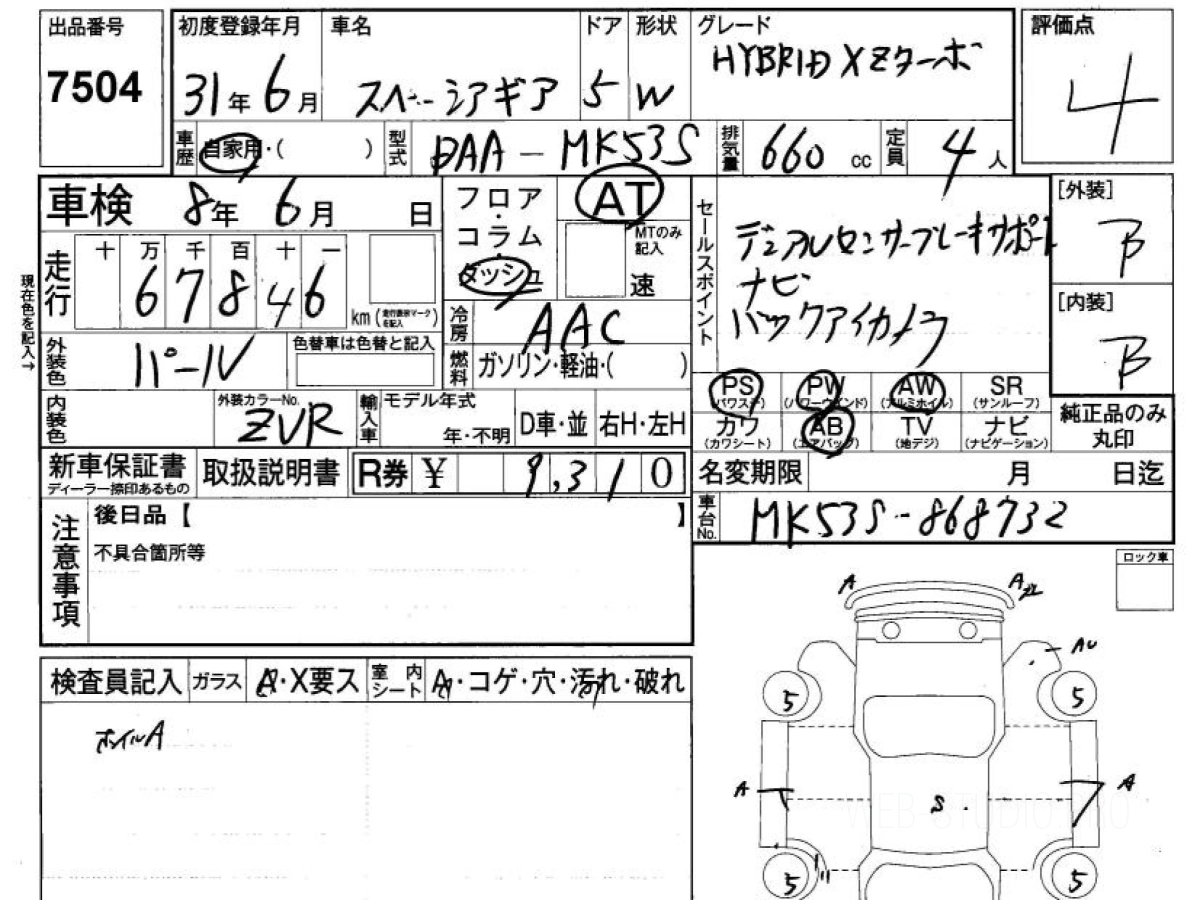 出品番号 初度登録年月 車名 ドア 形状 グレード 評価点
7504 31年6月 スペーシアギア 5 W HYBRID XZターボ 4
車歴 自家用・( ) 型式 DAA-MK53S 排気量 660 cc 定員 4人
車検 8年 6月 日
フロア・コラム・ダッシュ AT MTのみ記入 速
現在色を記入→
走行 十 万 千 百 十 一
67846 km (走行表示マークを記入)
冷房 AAC
燃料 ガソリン・軽油・( )
セールスポイント
デュアルセンサーブレーキサポート
ナビ
バックアイカメラ
[外装] B
[内装] B
純正品のみ丸印
外装色 パール 色替車は色替と記入
内装色 外装カラーNo. ZVR 輸入車 モデル年式 年・不明 D車・並 右H・左H
PS (パワステ) PW (パワーウインド) AW (アルミホイル) SR (サンルーフ)
カワ (カワシート) AB (エアバッグ) TV (地デジ) ナビ (ナビゲーション)
新車保証書 ディーラー捺印あるもの 取扱説明書 R券 ¥ 9,310
名変期限 月 日迄
車台No. MK53S-868732
注意事項 後日品【 】
不具合箇所等
ロック車
検査員記入 ガラス A・X要ス 室内シート A・コゲ・穴・汚れ・破れ
ホイルA
A A
AU
5 5
A S A
5 5
WEB STUDIO PRO